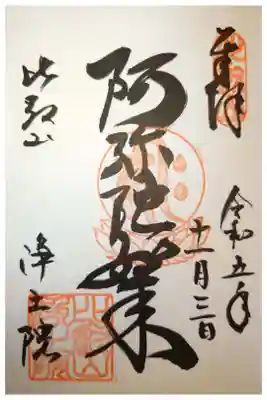 奉拝
令和五年
十一月三日
阿弥陀如来
比叡山
浄土院